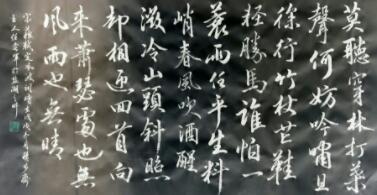 莫聽穿林打葉
聲何妨吟嘯且
徐行竹杖芒鞋
輕勝馬誰怕一
蓑雨任平生料
峭春風吹酒醒
微冷山頭斜照
却相迎回首向
來蕭瑟處也無
風雨也無晴
宋蘇軾定風波詞